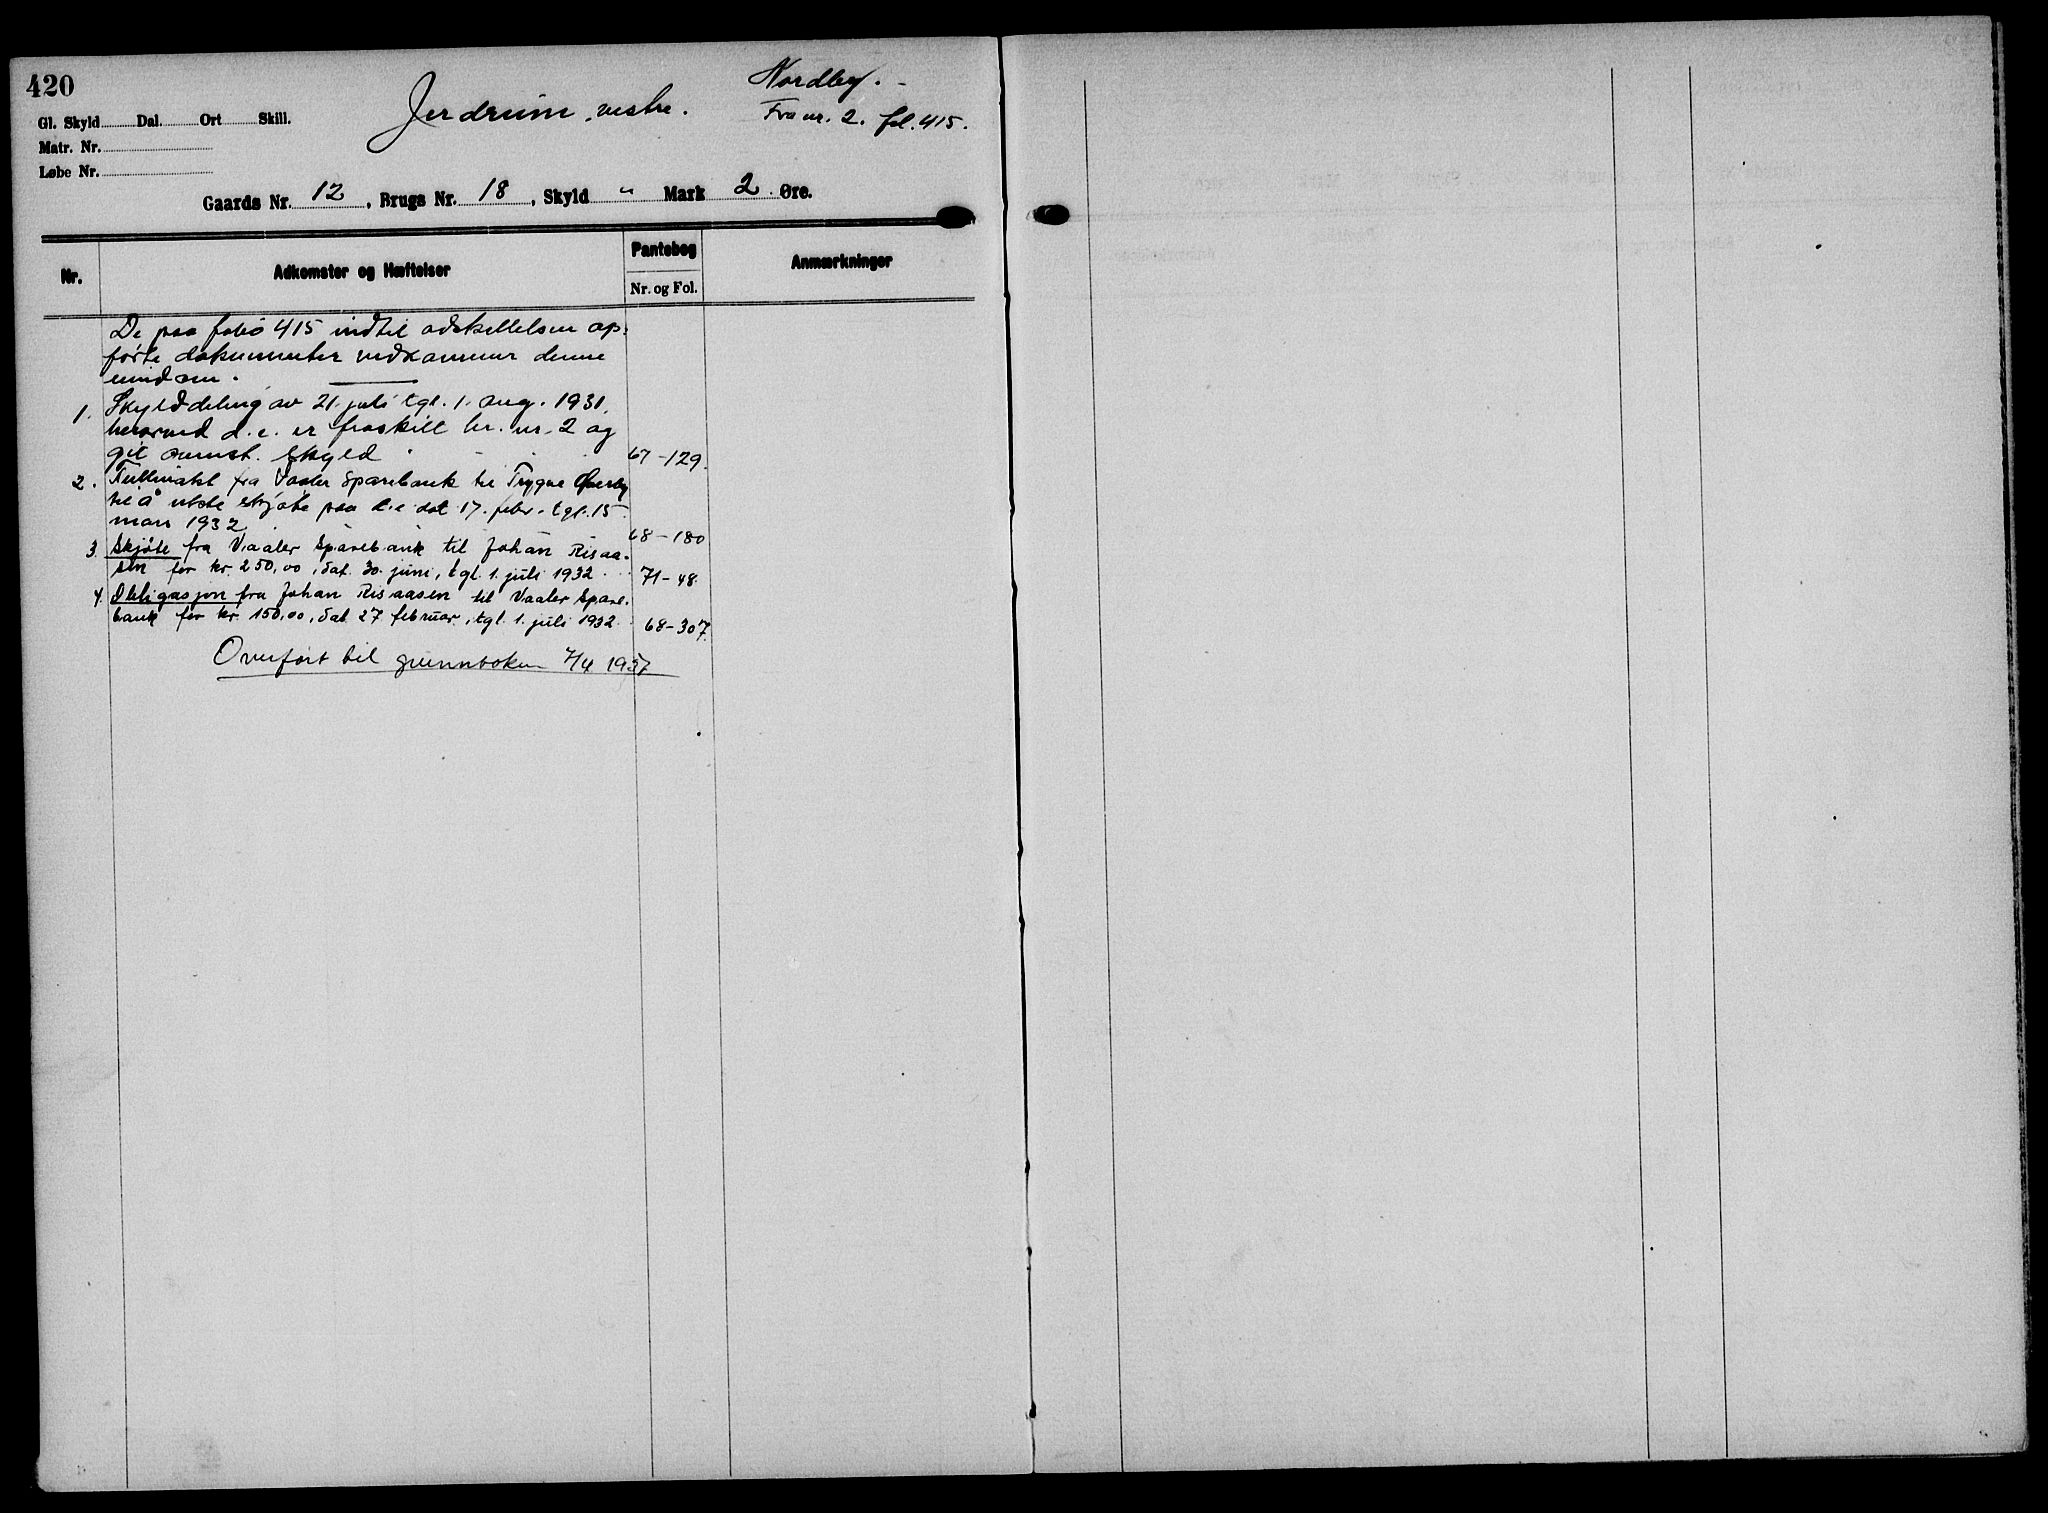 420
Jerdrum, vestre.
Nordby.
Fra nr. 2. fol. 415.
Gl. Skyld Dal. Ort Skill.
Matr. Nr.
Løbe Nr.
Gaards Nr. 12, Brugs Nr. 18, Skyld " Mark 2 Øre.
Nr. Adkomster og Hæftelser Pantebog Nr. og Fol. Anmærkninger
De paa folio 415 indtil adskillelsen op-
førte dokumenter vedkommer denne
eiendom.
1. Skylddeling av 21. juli tgl. 1. aug. 1931,
hvorved d. e. er fraskilt br. nr. 2 og
git ovenst. skyld 67-129.
2. Fullmakt fra Vaaler Sparebank til Trygve Overby
til å utste skjøte paa d.e. dat 17. febr. tgl. 15
mars 1932 68-180
3. Skjøte fra Vaaler Sparebank til Johan Risaa-
sen for kr. 250,00, dat. 30. juni, tgl. 1. juli 1932 71-48.
4. Obligasjon fra Johan Risaasen til Vaaler Spare-
bank for kr. 150,00, dat 27 februar, tgl. 1. juli 1932 68-307.
Overført til grunnboken 7/4 1937